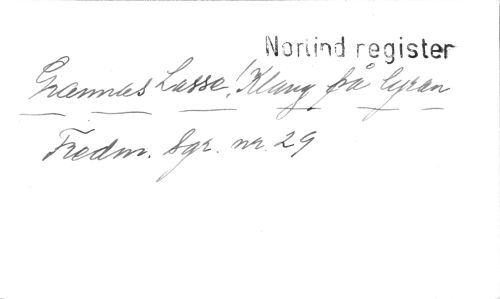 Norlind register
Grannas Lasse! Klang på lyran
Fredm. Sgr. nr. 29